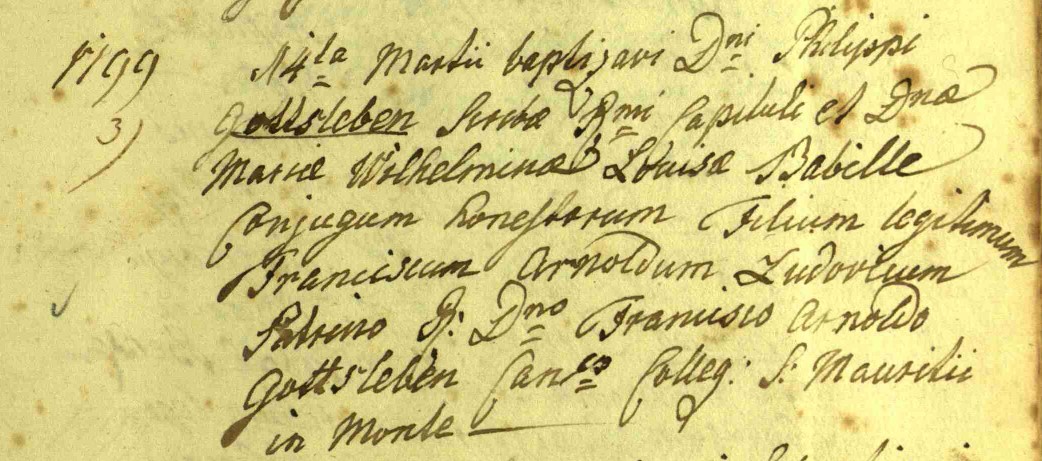 1799 14ta Martii baptizavi Dni Philippi
3) Gottsleben Scribæ Rmi Capituli et Dnæ
Mariæ Wilhelminæ Louisæ Babille
Conjugum honestorum Filium legitimum
Franciscum Arnoldum Ludovicum
Patrino R: Dno Francisco Arnoldo
Gottsleben Canco Colleg: S: Mauritii
in Monte